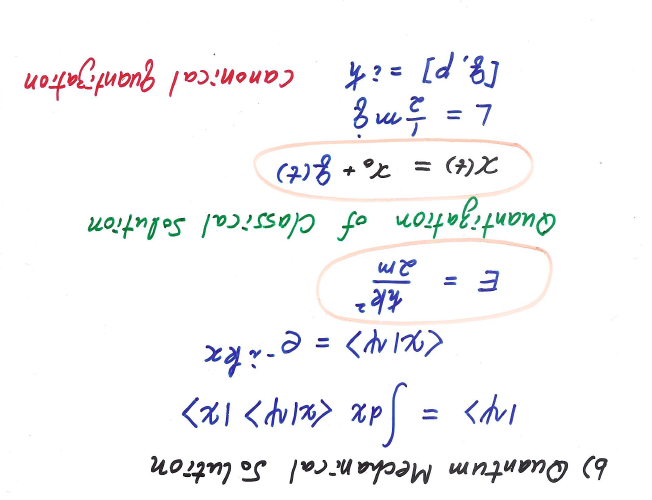 b) Quantum Mechanical Solution
|ψ> = ∫dx <x|ψ> |x>
<x|ψ> = e^-ikx
E = ħk²/2m
Quantization of Classical Solution
x(t) = x₀ + q(t)
L = 1/2 m q̇
[q, p] = iħ canonical quantization